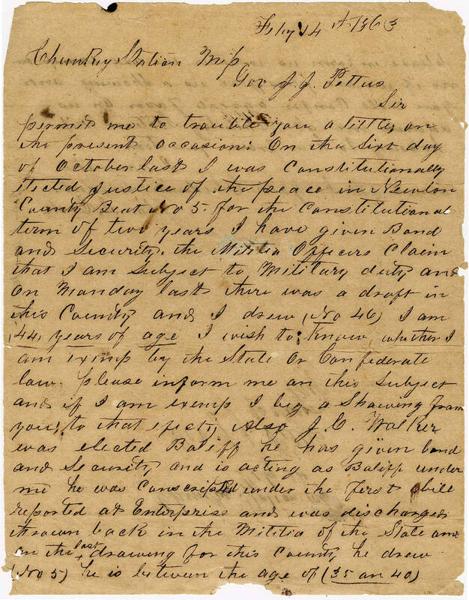 Feby 14th 1863
Chunkey Station Miss
Gov J. J. Pettus
Sir
permit me to trouble you a little on
the present occasion. On the first day
of October last I was Constitutionally
elected Justice of the peace in Newton
County Beat No 5. for the Constitutional
term of two years I have given Bond
and Security. the Militia Officers Claim
that I am Subject to Military duty and
on Monday last there was a draft in
this County and I drew (No 46) I am
(44) years of age I wish to know whether I
am exemp by the State Or Confederate
law. please inform me on this Subject
and if I am exemp I beg a Shawing from
you, to that efect, Also J. C. Walker
was elected Baliff he has given bond
and Security and is acting as Baliff under
me he was Conscripted under the first
reported at Enterprise and was discharged
thrown back in the Militia of the State and
in the last drawing for this County he drew
No 5) he is between the age of (35 an 40)